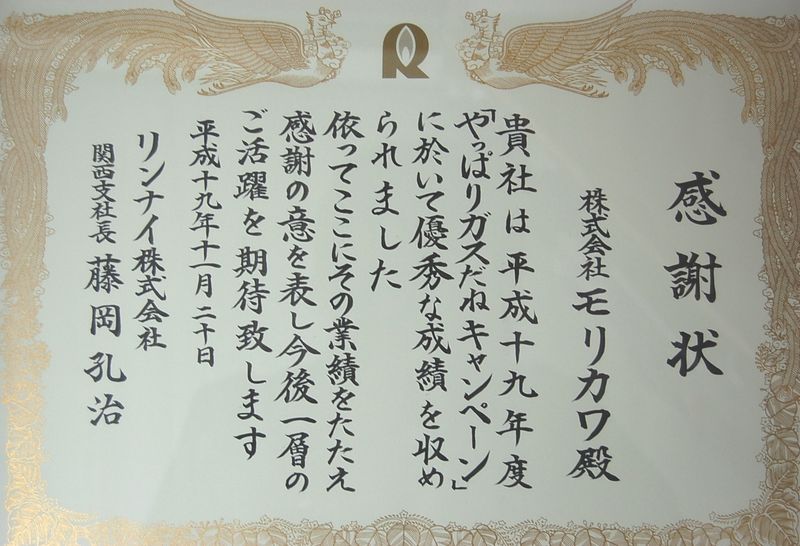 感謝状
株式会社 モリカワ殿
貴社は平成十九年度
「やっぱりガスだねキャンペーン」
に於いて優秀な成績を収め
られました
依ってここにその業績をたたえ
感謝の意を表し今後一層の
ご活躍を期待致します
平成十九年十一月二十日
リンナイ株式会社
関西支社長 藤岡孔治
R